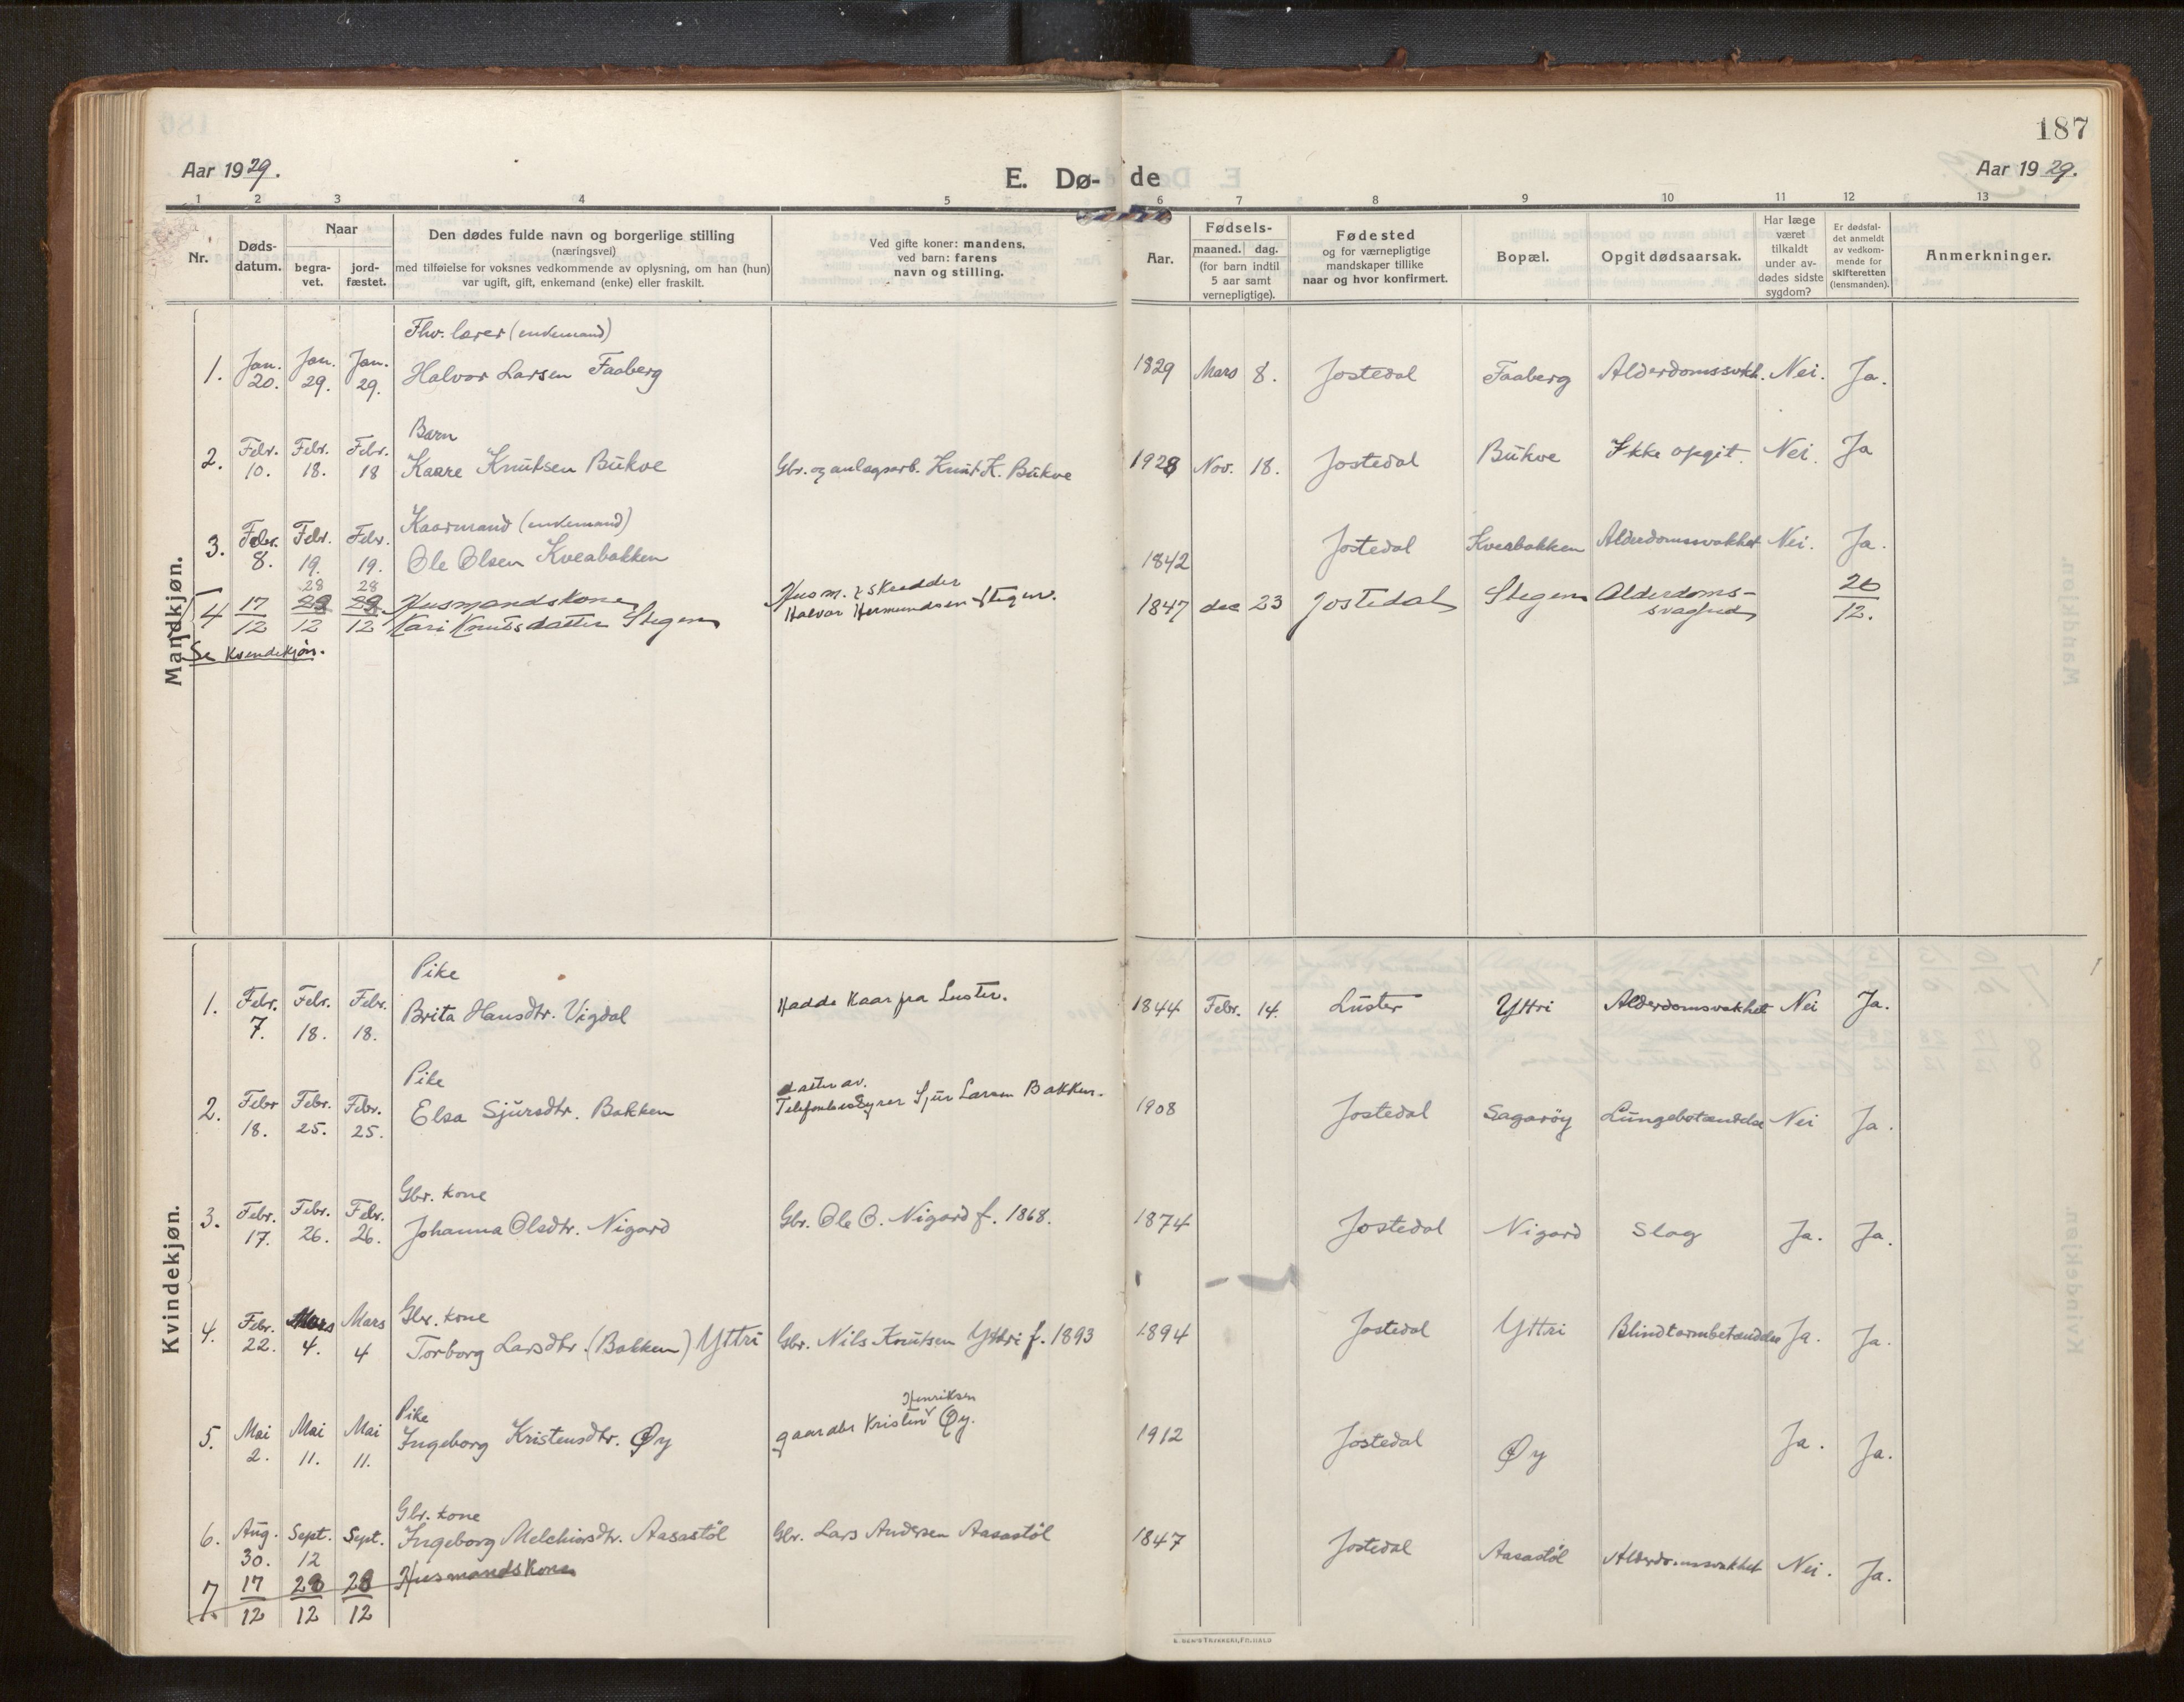 187
Aar 1929.
E. Dø-de
Aar 1929.
1 2 3 4 5 6 7 8 9 10 11 12 13
Nr.
Døds-
datum.
Naar
begra-
vet.
jord-
fæstet.
Den dødes fulde navn og borgerlige stilling
(næringsvei)
med tilføielse for voksnes vedkommende av oplysning, om han (hun)
var ugift, gift, enkemand (enke) eller fraskilt.
Ved gifte koner: mandens,
ved barn: farens
navn og stilling.
Aar.
Fødsels-
maaned. dag.
(for barn indtil
5 aar samt
vernepligtige).
Fødested
og for værnepligtige
mandskaper tillike
naar og hvor konfirmert.
Bopæl.
Opgit dødsaarsak.
Har læge
været
tilkaldt
under av-
dødes sidste
sygdom?
Er dødsfal-
det anmeldt
av vedkom-
mende for
skifteretten
(lensmanden).
Anmerkninger.
Mandkjøn.
Fhv. lærer (enkemand)
1. Jan. 20. Jan. 29. Jan. 29. Halvor Larsen Faaberg 1829 Mars 8. Jostedal Faaberg Alderdomssvkh. Nei. Ja.
Barn
2. Febr. 10. Febr. 18. Febr. 18 Kaare Knutsen Bukve Gbr. og anlagsarb. Knut K. Bukve 1928 Nov. 18. Jostedal Bukve Ikke opgit. Nei. Ja
Kaarmand (enkemand)
3. Febr. 8. Febr. 19. Febr. 19. Ole Olsen Kveabakken 1842 Jostedal Kveabakken Alderdomssvakhet Nei. Ja.
28 28
4 17/12 29/12 29/12 Husmandskone Husm. & skredder
Kari Knutsdatter Stegen Halvor Hermundsen Stegen. 1847 dec 23 Jostedal Stegen Alderdoms-
svaghed 20/12.
Se Kvendekjön.
Kvindekjøn.
Pike
1. Febr. 7. Febr. 18. Febr. 18. Brita Hansdtr. Vigdal Hadde Kaar fra Luster. 1844 Febr. 14. Luster Yttri Alderdomsvakhet Nei Ja.
Pike datter av.
2. Febr 18. Febr. 25. Febr. 25. Elsa Sjursdtr. Bakken Telefonbestyrer Sjur Larsen Bakken. 1908 Jostedal Sagarøy Lungebetændelse Nei Ja.
Gbr. kone
3. Febr. 17. Febr. 26. Febr. 26. Johanna Olsdtr. Nigard Gbr. Ole O. Nigard f. 1868. 1874 Jostedal Nigard Slag Ja. Ja.
Gbr. kone
4. Febr. 22. Mars 4. Mars 4 Torborg Larsdtr. (Bakken) Yttri Gbr. Nils Knutsen Yttri f. 1893 1894 Jostedal Yttri Blindtarmbetændelse Ja. Ja.
Pike Henriksen
5. Mai 2. Mai 11. Mai 11. Ingeborg Kristensdtr. Øy gaardbr Kristen Øy. 1912 Jostedal Øy Ja. Ja.
Gbr. kone
6. Aug. 30. Sept. 12 Sept. Ingeborg Melchiorsdtr. Aasastöl Gbr. Lars Andersen Aasastöl 1847 Jostedal Aasastöl Alderdomssvakhet Nei. Ja.
7. 17/12 28/12 28/12 Husmandskone